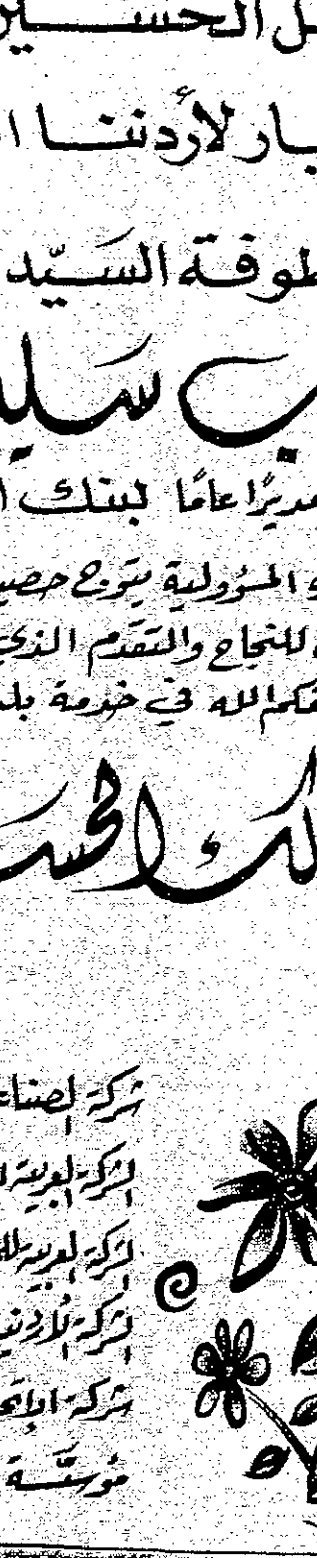 ل الحسين
ـار لأردننا ا
طوفة السيّد
ب سليـ
مديرًا عامًا لبنك ا
المسؤولية يتوج حصيـ
للنجاح والتقدم الذي
فقكم الله في خدمة بلد
لك الحسـ
شركة لصناعـ
الشركة العربية ا
الشركة العربية للـ
الشركة الأردنيـ
شركة
مؤسسة